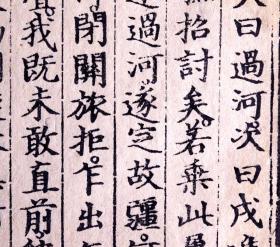 曰過河次曰戍
招討矣若棄此
過河遂定故疆
閉關旅拒乍出
我既未敢直前